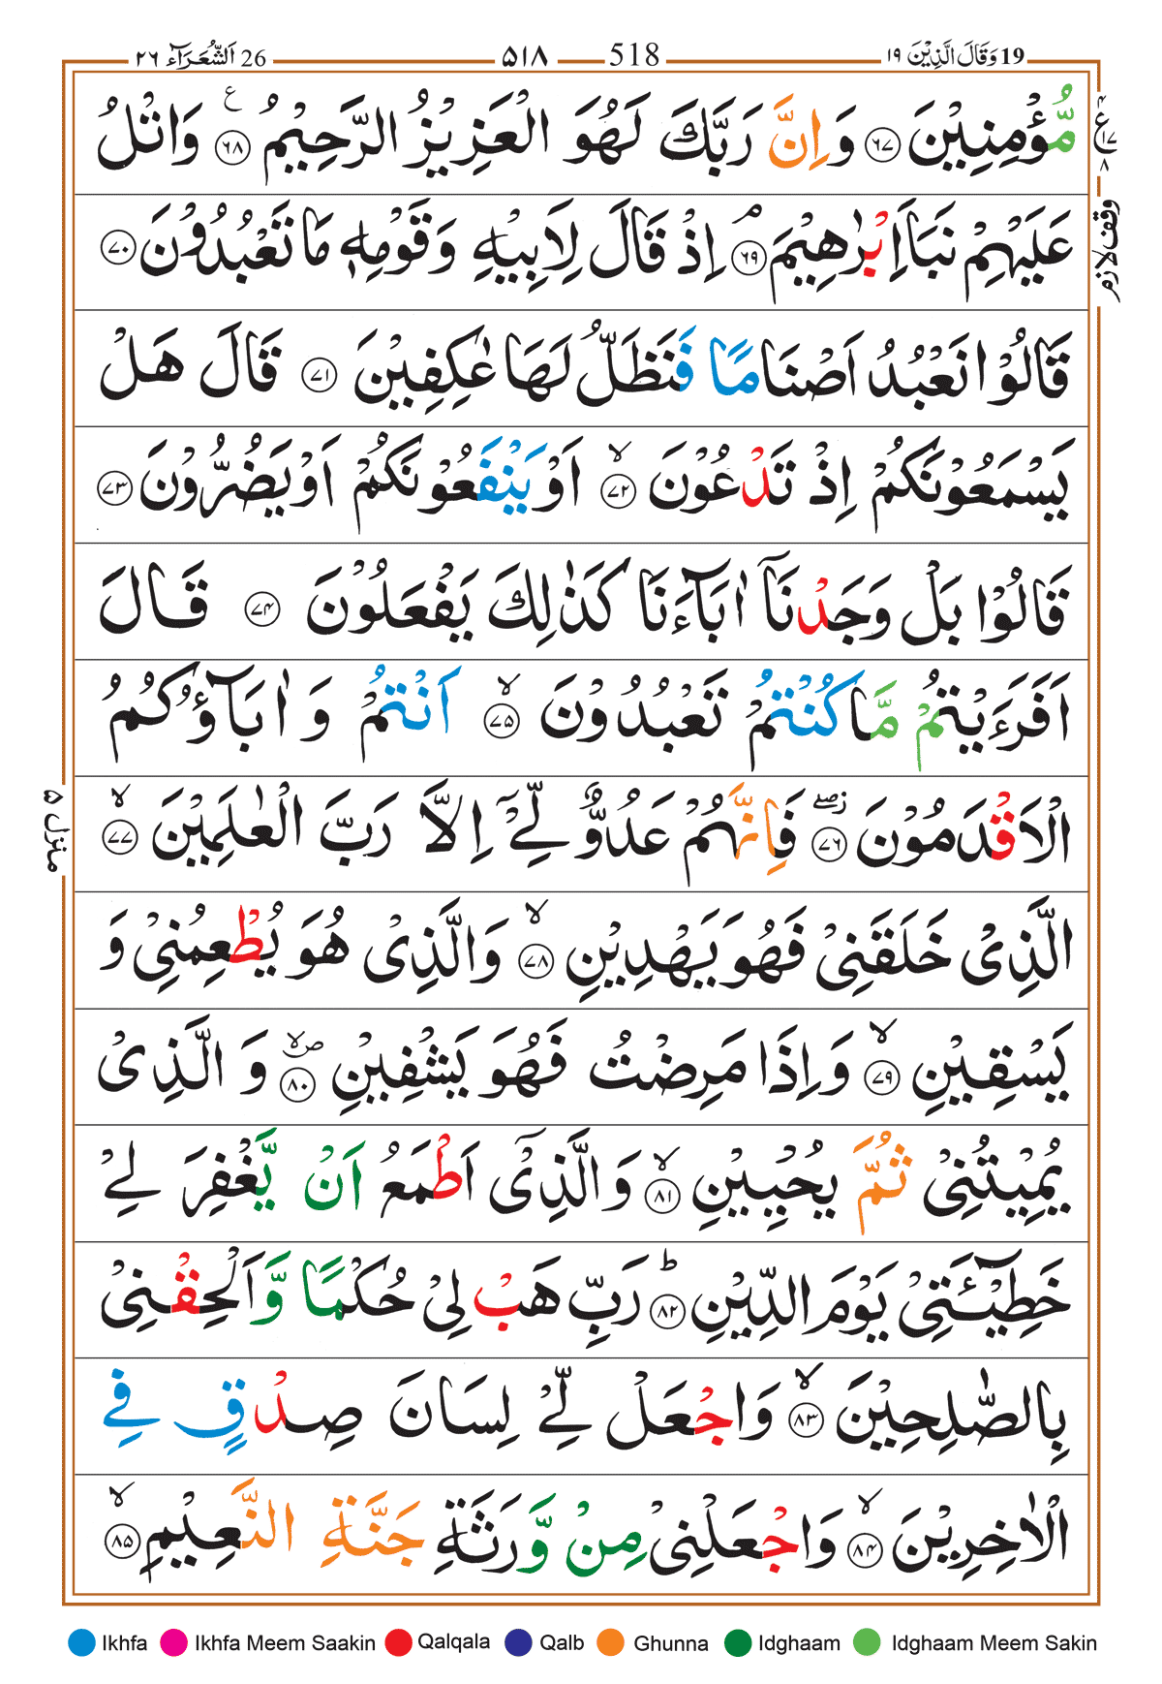 26 اَلشُّعَرَآء ٢٦ ٥١٨ 518 19 وَقَالَ الَّذِيْنَ ١٩
مُّؤْمِنِيْنَ ٦٧ وَاِنَّ رَبَّكَ لَهُوَ الْعَزِيْزُ الرَّحِيْمُ ٦٨ وَاتْلُ
عَلَيْهِمْ نَبَاَ اِبْرٰهِيْمَ ٦٩ اِذْ قَالَ لِاَبِيْهِ وَقَوْمِهٖ مَا تَعْبُدُوْنَ ٧٠
وقف لازم
قَالُوْا نَعْبُدُ اَصْنَامًا فَنَظَلُّ لَهَا عٰكِفِيْنَ ٧١ قَالَ هَلْ
يَسْمَعُوْنَكُمْ اِذْ تَدْعُوْنَ ٧٢ اَوْ يَنْفَعُوْنَكُمْ اَوْ يَضُرُّوْنَ ٧٣
قَالُوْا بَلْ وَجَدْنَاۤ اٰبَآءَنَا كَذٰلِكَ يَفْعَلُوْنَ ٧٤ قَالَ
اَفَرَءَيْتُمْ مَّا كُنْتُمْ تَعْبُدُوْنَ ٧٥ اَنْتُمْ وَ اٰبَآؤُكُمُ
الْاَقْدَمُوْنَ ٧٦ فَاِنَّهُمْ عَدُوٌّ لِّيْۤ اِلَّا رَبَّ الْعٰلَمِيْنَ ٧٧
منزل ٥
الَّذِيْ خَلَقَنِيْ فَهُوَ يَهْدِيْنِ ٧٨ وَالَّذِيْ هُوَ يُطْعِمُنِيْ وَ
يَسْقِيْنِ ٧٩ وَاِذَا مَرِضْتُ فَهُوَ يَشْفِيْنِ ٨٠ وَ الَّذِيْ
يُمِيْتُنِيْ ثُمَّ يُحْيِيْنِ ٨١ وَالَّذِيْۤ اَطْمَعُ اَنْ يَّغْفِرَ لِيْ
خَطِيْٓـَٔتِيْ يَوْمَ الدِّيْنِ ٨٢ رَبِّ هَبْ لِيْ حُكْمًا وَّاَلْحِقْنِيْ
بِالصّٰلِحِيْنَ ٨٣ وَاجْعَلْ لِّيْ لِسَانَ صِدْقٍ فِي
الْاٰخِرِيْنَ ٨٤ وَاجْعَلْنِيْ مِنْ وَّرَثَةِ جَنَّةِ النَّعِيْمِ ٨٥
Ikhfa Ikhfa Meem Saakin Qalqala Qalb Ghunna Idghaam Idghaam Meem Sakin